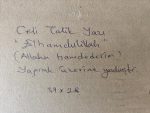 Celi Talik Yazı
"Elhamdülillah"
(Allaha hamdederim)
Yaprak üzerine yazılmıştır.
39 x 28